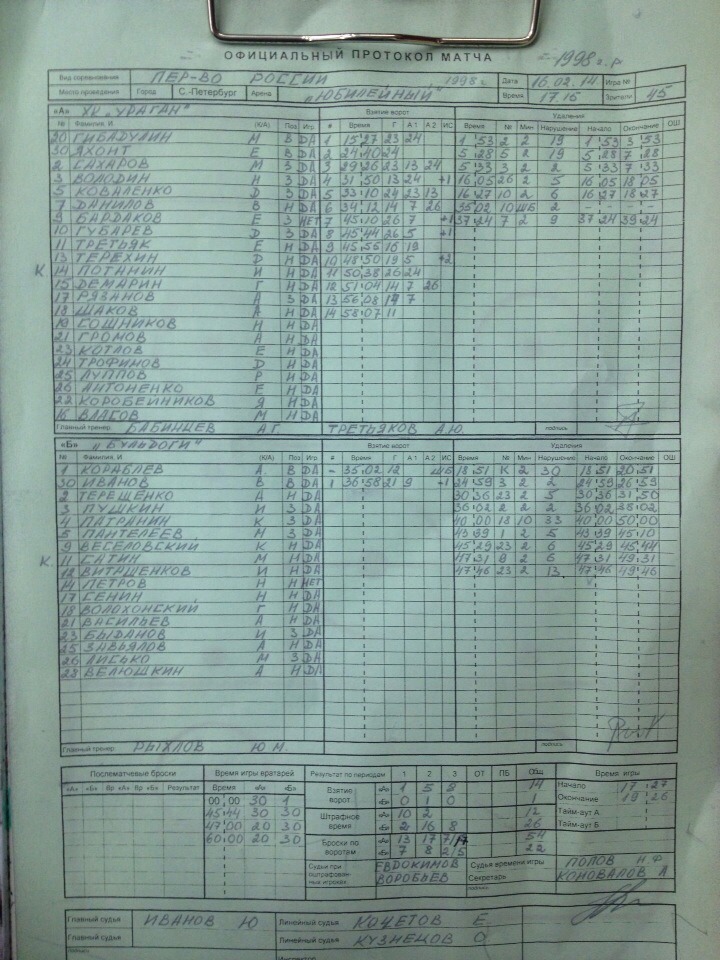 ОФИЦИАЛЬНЫЙ ПРОТОКОЛ МАТЧА 1998 г.р.
Вид соревнования ПЕР-ВО РОССИИ 1998 г. Дата 16.02.14 Игра №
Место проведения Город С.-Петербург Арена "ЮБИЛЕЙНЫЙ" Время 17.15 Зрители 45
«А» ХК "УРАГАН" Взятие ворот Удаления
№ Фамилия, И. (К/А) Поз Игр # Время Г А1 А2 ИС Время № Мин Нарушение Начало Окончание ОШ
20 ГИБАДУЛИН М В ДА 1 15 27 23 24 1 53 2 2 19 1 53 3 53
30 ЯХОИТ Е В ДА 2 24 40 24 5 28 5 2 19 5 28 7 28
2 САХАРОВ М З ДА 3 29 26 23 13 24 5 33 3 2 2 5 33 7 33
3 ВОЛОДИН И З ДА 4 31 50 13 24 +1 16 05 26 2 5 16 05 18 05
5 КОВАЛЕНКО D З ДА 5 33 10 24 23 13 16 27 10 2 6 16 27 18 27
7 ДАНИЛОВ В Н ДА 6 34 12 14 7 26 35 02 10 ШБ 2 - - - -
9 БАРДАКОВ Е З НЕТ 7 45 10 26 7 +1 37 24 7 2 9 37 24 39 24
10 ГУБАРЕВ D З ДА 8 45 44 26 5 +1
11 ТРЕТЬЯК Е Н ДА 9 45 55 16 19
13 ТЕРЕХИН D Н ДА 10 48 50 19 5 +2
К. 14 ПОТАНИН И Н ДА 11 50 38 26 24
15 ДЕМАРИН Г Н ДА 12 51 04 14 7 26
17 РЯЗАНОВ А З ДА 13 56 08 17 7
18 ШАКОВ А Н ДА 14 58 07 11
19 СОШНИКОВ Н Н ДА
21 ГРОМОВ А Н ДА
23 КОТЛОВ Е Н ДА
24 ТРОФИМОВ D Н ДА
25 ЛУППОВ Р Н ДА
26 АНТОНЕНКО Е Н ДА
22 КОРОБЕЙНИКОВ Я Н ДА
16 ВЛАСОВ М Н ДА
Главный тренер БАБИНЦЕВ А.Г. ТРЕТЬЯКОВ А.Ю. подпись
«Б» "БУЛЬДОГИ" Взятие ворот Удаления
№ Фамилия, И. (К/А) Поз Игр # Время Г А1 А2 ИС Время № Мин Нарушение Начало Окончание ОШ
1 КОРАБЛЕВ А. В ДА - 35 02 12 ШБ 18 51 К 2 30 18 51 20 51
30 ИВАНОВ В В ДА 1 36 58 21 9 +1 24 59 3 2 2 24 59 26 59
2 ТЕРЕЩЕНКО А Н ДА 30 36 23 2 5 30 36 31 50
3 ПУШКИН И З ДА 36 02 2 2 2 36 02 38 02
4 ПАТРАНИН К З ДА 40 00 18 10 33 40 00 50 00
5 ПАНТЕЛЕЕВ Н З ДА 43 39 1 2 5 43 39 45 10
9 ВЕСЕЛОВСКИЙ К Н ДА 45 29 23 2 6 45 29 45 44
К. 11 САТИН М Н ДА 47 31 9 2 6 47 31 49 31
12 ВИТЮШЕНКОВ И Н ДА 47 46 23 2 13 47 46 49 46
14 ПЕТРОВ Н Н НЕТ
17 СЕНИН Н Н ДА
18 ВОЛОХОНСКИЙ Г Н ДА
21 ВАСИЛЬЕВ А Н ДА
23 БЫДАНОВ И З ДА
25 ЗАВЬЯЛОВ А Н ДА
26 ЛИСЬКО М З ДА
28 ВЕЛЮШКИН А Н ДА
Главный тренер РЫХЛОВ Ю М. подпись
Послематчевые броски Время игры вратарей Результат по периодам 1 2 3 ОТ ПБ Общ Время игры
«А» «Б» Вр «А» Вр «Б» Результат Время «А» «Б» Взятие ворот «А» 1 5 8 14 Начало 17 27
00 00 30 1 «Б» 0 1 0 1 Окончание 19 26
45 44 30 30 Штрафное время «А» 10 2 12 Тайм-аут А
47 00 20 30 «Б» 2 16 8 26 Тайм-аут Б
60 00 20 30 Броски по воротам «А» 13 17 54
«Б» 7 8 22
Судьи при оштрафованных игроках ЕВДОКИМОВ Судья времени игры ПОПОВ Н Ф
ВОРОБЬЕВ Секретарь КОНОВАЛОВ А
подпись
Главный судья ИВАНОВ Ю Линейный судья КОЧЕТОВ Е
Главный судья Линейный судья КУЗНЕЦОВ О
подпись Инспектор